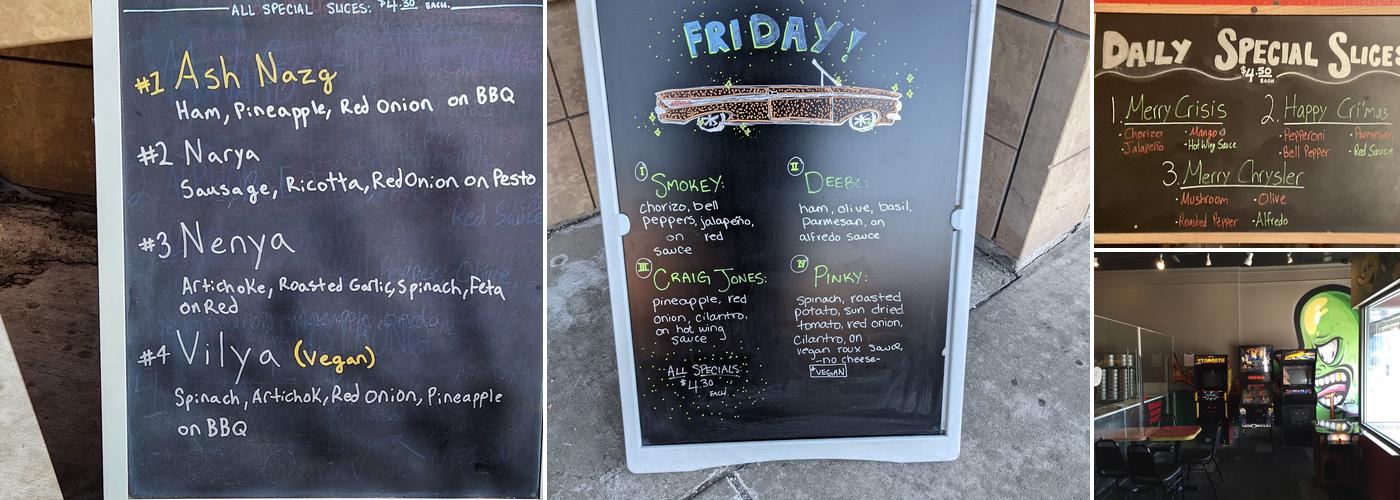 ALL SPECIAL SLICES: $4.30 EACH.
#1 Ash Nazg
Ham, Pineapple, Red Onion on BBQ
#2 Narya
Sausage, Ricotta, Red Onion on Pesto
#3 Nenya
Artichoke, Roasted Garlic, Spinach, Feta
on Red
#4 Vilya (Vegan)
Spinach, Artichok, Red Onion, Pineapple
on BBQ
FRIDAY!
I SMOKEY:
chorizo, bell
peppers, jalapeño,
on red
sauce
II DEEBO:
ham, olive, basil,
Parmesan, on
alfredo sauce
III CRAIG JONES:
pineapple, red
onion, cilantro,
on hot wing
sauce
IV PINKY:
Spinach, roasted
potato, sun dried
tomato, red onion,
Cilantro, on
vegan roux sauce,
-no cheese-
VEGAN
ALL SPECIALS
$4.30
EACH
DAILY SPECIAL SLICES
$4.50
EACH
1. Merry Crisis
• Chorizo • Mango
• Jalapeño • Hot Wing Sauce
2. Happy Cri'mas
• Pepperoni • Parmesan
• Bell Pepper • Red Sauce
3. Merry Chrysler
• Mushroom • Olive
• Roasted Pepper • Alfredo